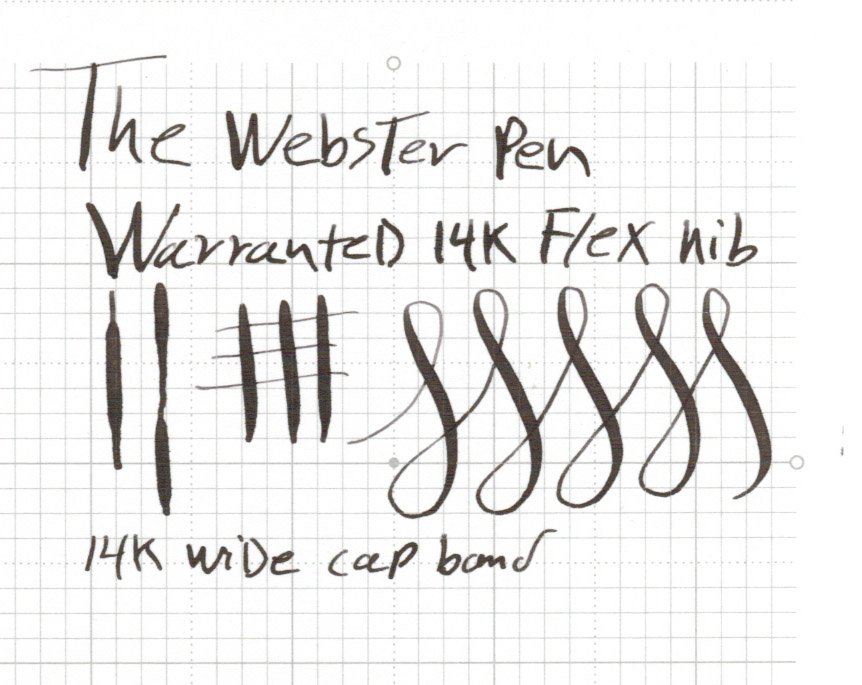 The Webster Pen
Warranted 14K Flex nib
14K wide cap band